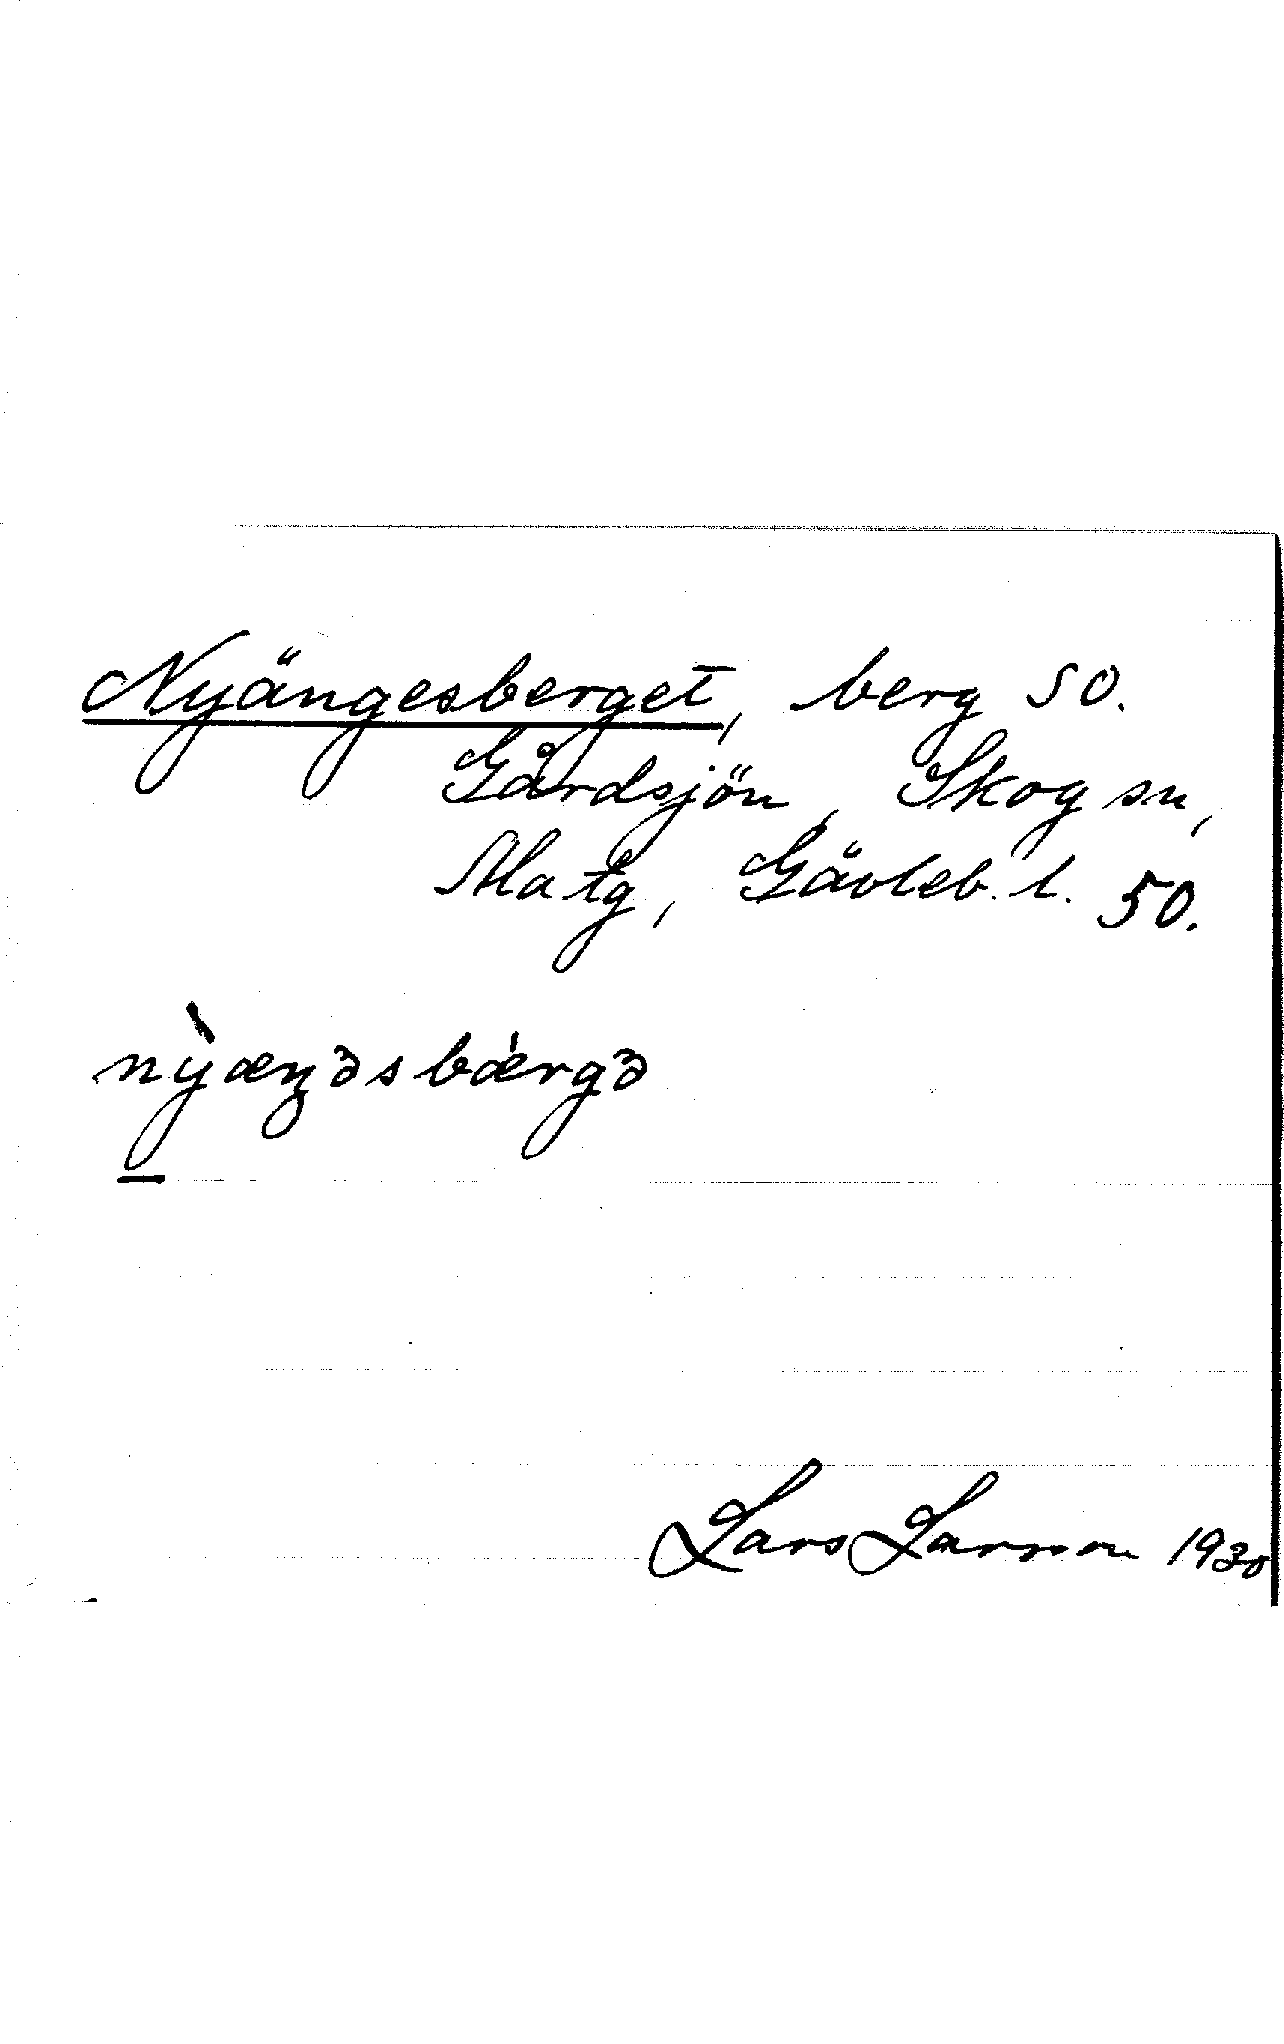 Nyängesberget, berg SO.
Gårdsjön, Skog sn,
Ala tg, Gävleb. l. 50.
nỳæŋəsbǽrgə
Lars Larsson 1930